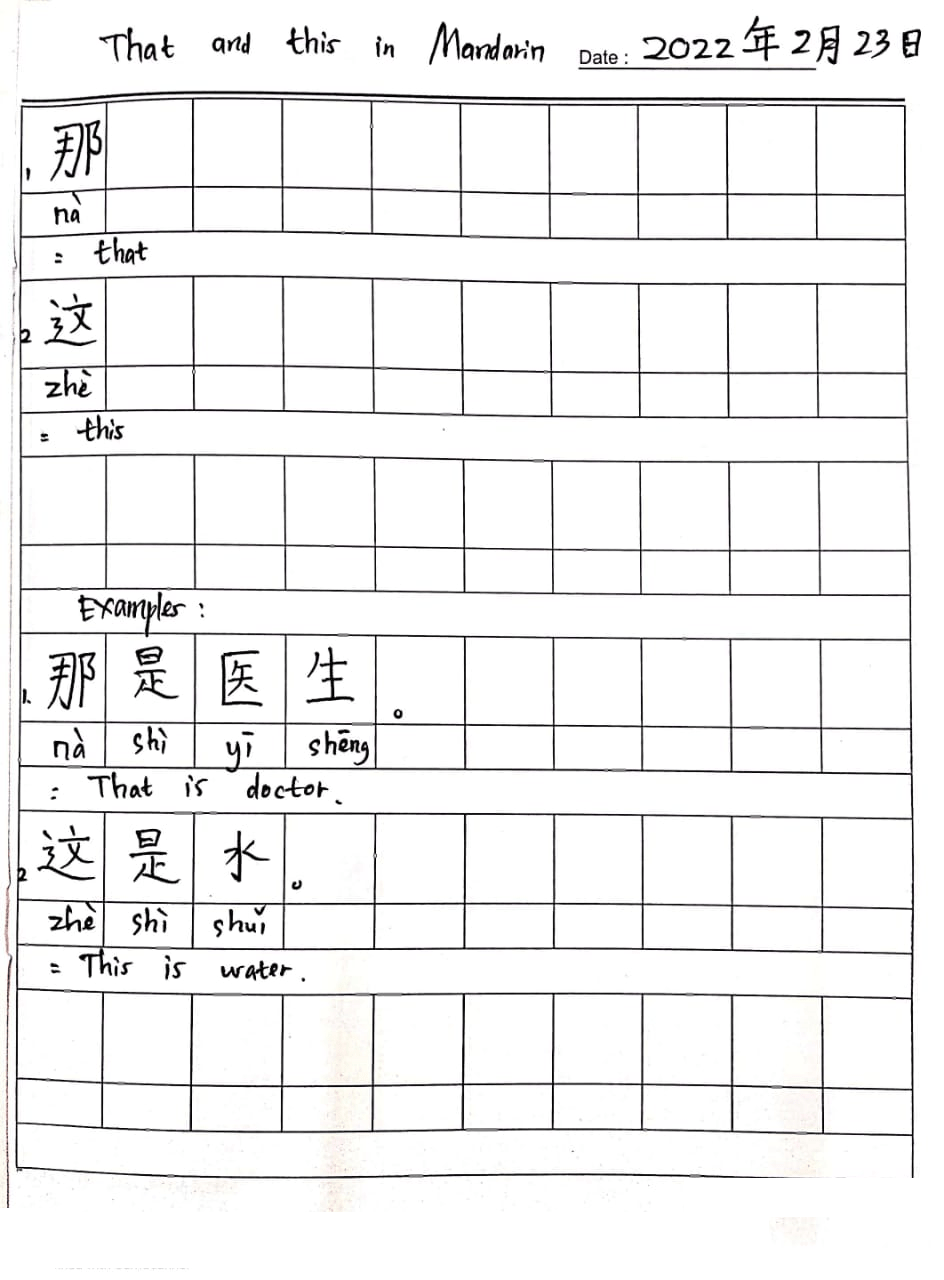 That and this in Mandarin Date : 2022年2月23日
1. 那
nà
= that
2. 这
zhè
= this
Examples :
1. 那是医生。
nà shì yī shēng
= That is doctor.
2. 这是水。
zhè shì shuǐ
= This is water.